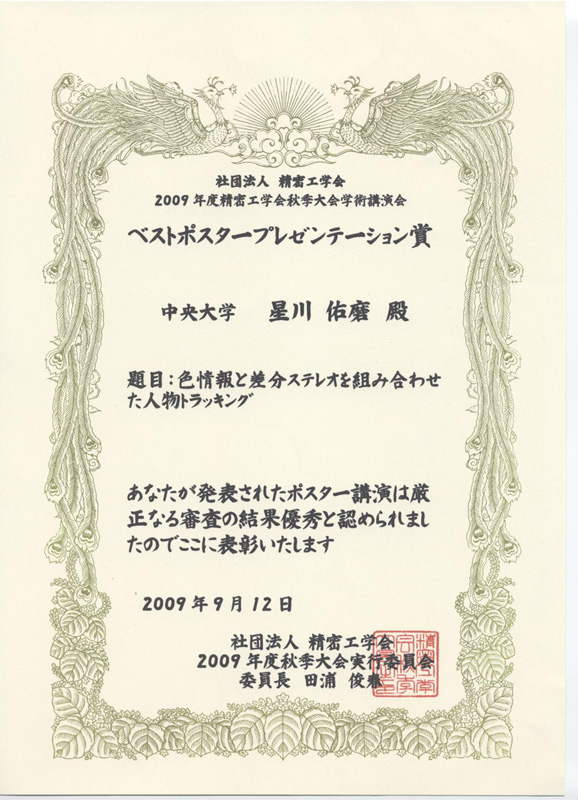 社団法人 精密工学会
2009年度精密工学会秋季大会学術講演会
ベストポスタープレゼンテーション賞
中央大学 星川 佑磨 殿
題目：色情報と差分ステレオを組み合わせ
た人物トラッキング
あなたが発表されたポスター講演は厳
正なる審査の結果優秀と認められまし
たのでここに表彰いたします
2009年9月12日
社団法人 精密工学会
2009年度秋季大会実行委員会
委員長 田浦 俊春